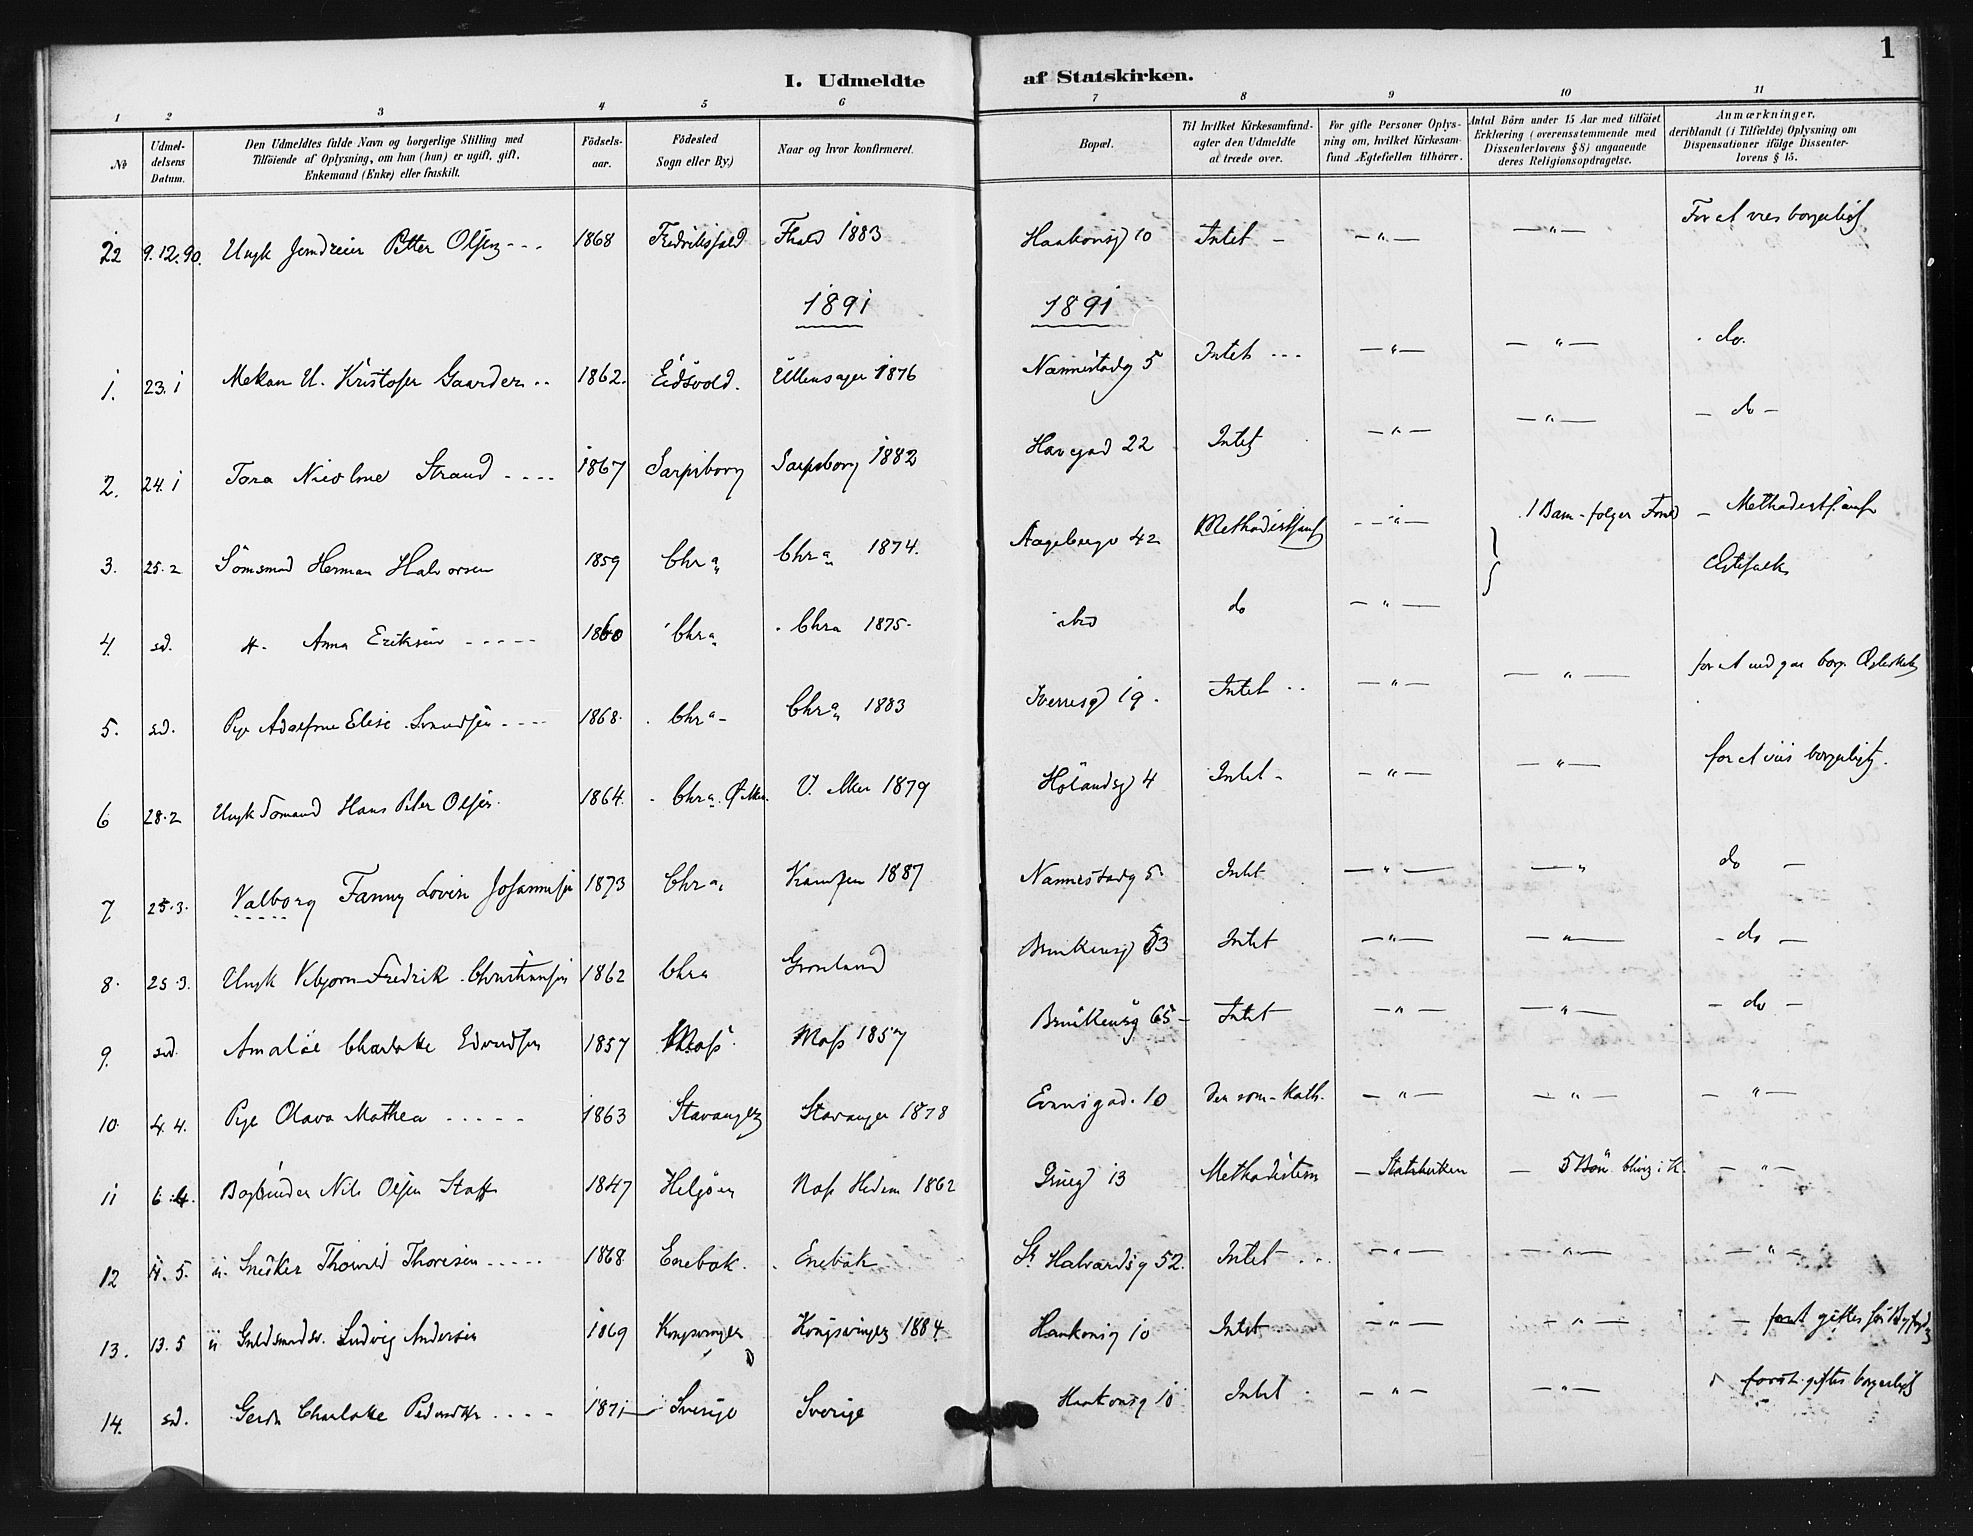 1
I. Udmeldte af Statskirken.
1 2 3 4 5 6 7 8 9 10 11
No
Udmeldelsens Datum.
Den Udmeldtes fulde Navn og borgerlige Stilling med
Tilföiende af Oplysning, om han (hun) er ugift, gift,
Enkemand (Enke) eller fraskilt.
Födselsaar.
Födested
Sogn eller By.)
Naar og hvor konfirmeret.
Bopæl.
Til hvilket Kirkesamfund-
agter den Udmeldte
at træde over.
For gifte Personer Oplys-
ning om, hvilket Kirkesam-
fund Ægtefællen tilhörer.
Antal Börn under 15 Aar med tilföiet
Erklæring (overensstemmende med
Dissenterlovens § 8) angaaende
deres Religionsopdragelse.
Anmærkninger,
deriblandt (i Tilfælde) Oplysning om
Dispensationer ifölge Dissenter-
lovens § 15.
22 9.12.90. Ungk Petter Olsen --- 1868 Fredrikshald Fhald 1883 Haakonsg 10 Intet - -"- -"- For at vies borgerligt
1891 1891
1. 23.1 Mekan U. Kristofer Gaarder .. 1862. Eidsvold. Ullensager 1876 Nannestadg 5 Intet ... -"- -"- . do.
2. 24.1 Tora Nicoline Strand ---- 1867 Sarpsborg Sarpsborg 1882 Havegad 22 Intet -"- -"- - do -
3. 25.2 Herman Halvorsen 1859 Chra Chra 1874. Aagebergv 42 Methodistsamf -"- 1 Barn - følger Foræld - Methodistsamf
Ægtefolk
4. sd. Anna Eriksen ----- 1860 Chra Chra 1875- ibid do -"-
5. sd. Pige Elise ---- 1868. Chra - Chra 1883 Sverresg 19. Intet .. -"- -"- for at indgaa borg. Ægteskab
6 28.2 Ungk Sømand Hans Peter Olsen. 1864. Chra. Ø. Aker. V. Aker 1879 Hölandsg 4 Intet - -"- -"- for at vies borgerligt.
7 25.3. Valborg Fanny Lovise Johannesen 1873 Chra Kampen 1887 Nannestadg 5 Intet -"- -" do -
8. 25.3. Ungk Fredrik Christiansen 1862 Chra Grønland Brinkensg 53 Intet -"- -"- - do -
9. sd. Amalie Charlotte 1857 Moss Moss 1857 Brinkensg 65 - Intet -"- -"- - do -
10. 4.4. Pige Olava Mathea ----- 1863 Stavanger Stavanger 1878 gad. 10 Den rom-kath. -"- -"- -"-
11 6.4. Bogbinder Nils Olsen 1847 Helgöen Næs Hedem 1862 13 Methodistern - Statskirken - 5 Börn bliver i K. -"-
12 11.5. u. Snedker Thorvald Thoresen ----- 1868 Enebak. Enebak St Halvardsg 52. Intet ... -"- -"- -"-
13. 13.5 u Guldsmedsv. Ludvig Andersen 1869 Kongsvinger Kongsvinger 1884. Haakonsg 10 Intet -"- -"- - for at giftes for Byfogd
14. sd. Gerda Charlotte ---- 1871 Sverige Sverige Haakonsg 10 Intet -"- -"- for at giftes borgerligt